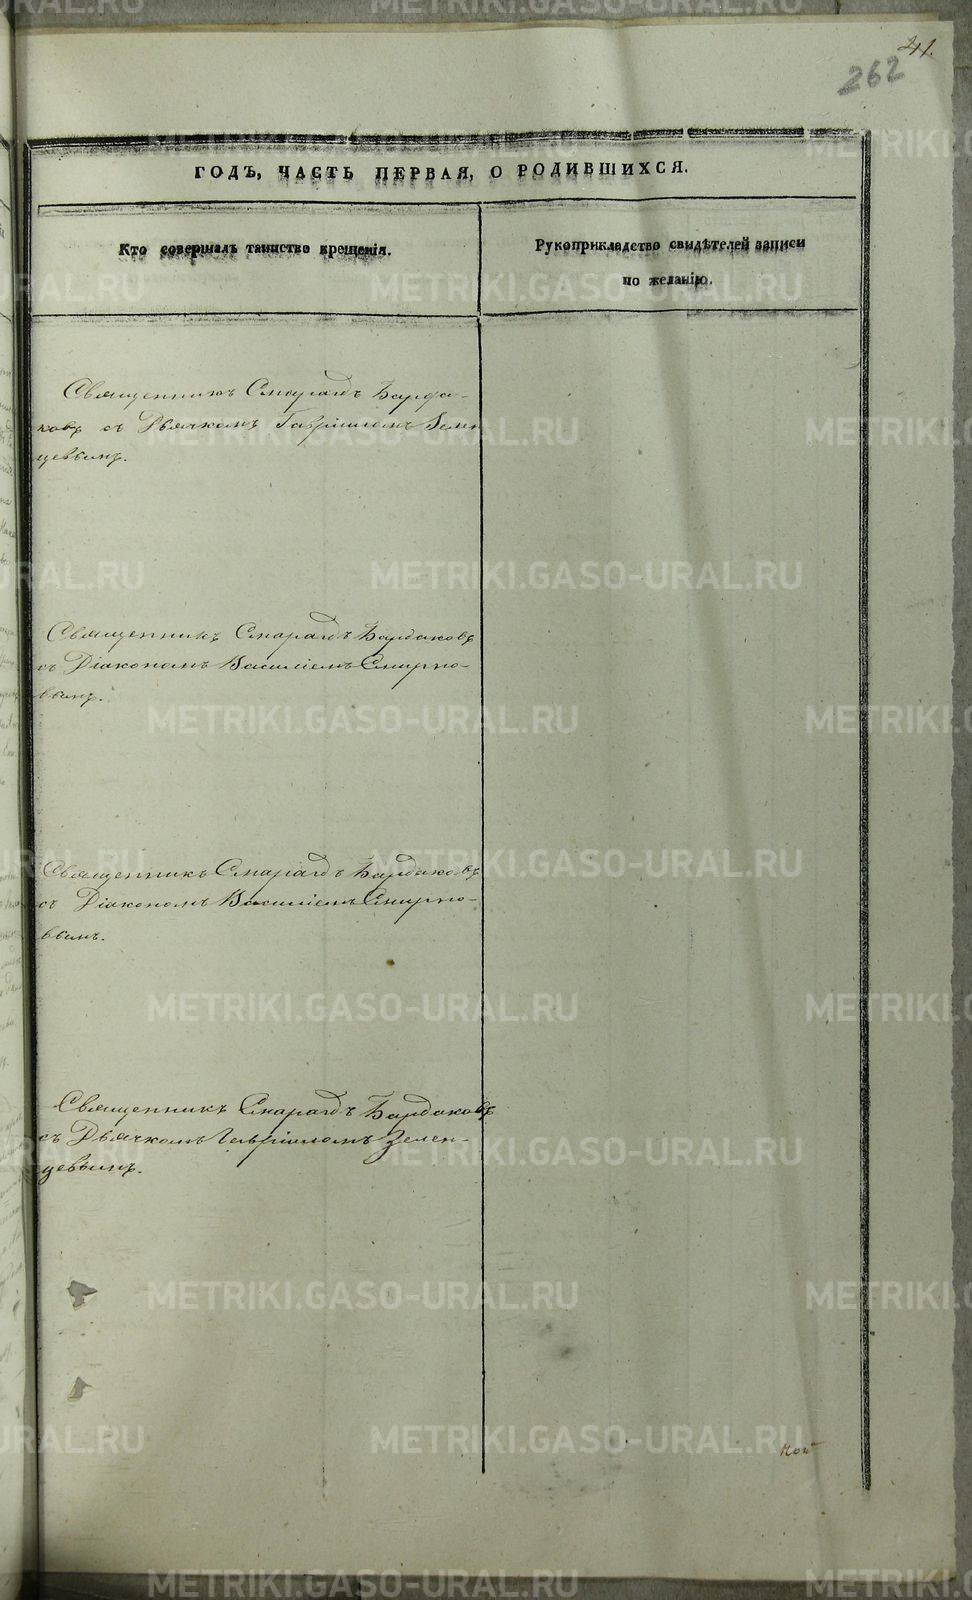 41.
262
ГОДЪ, ЧАСТЬ ПЕРВАЯ, О РОДИВШИХСЯ.
Кто совершалъ таинство крещенія.
Рукоприкладство свидѣтелей записи
по желанію.
Священникъ Смарагдъ Барда-
ковъ съ Дьячкомъ Гавріиломъ Зелен
цевымъ.
Священникъ Смарагдъ Бардаковъ
съ Діакономъ Василіемъ Смирно-
вымъ.
Священникъ Смарагдъ Бардаковъ
съ Діакономъ Василіемъ Смирно-
вымъ.
Священникъ Смарагдъ Бардаковъ
съ Дьячкомъ Гавріиломъ Зелен-
цевымъ.
METRIKI.GASO-URAL.RU